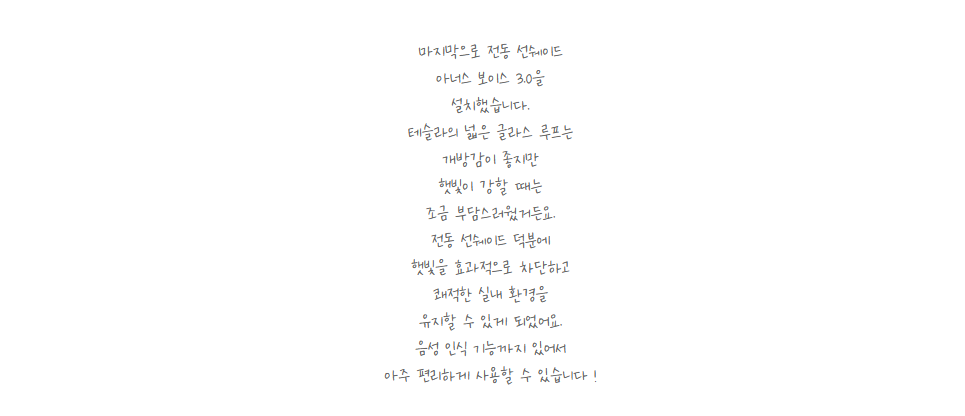 마지막으로 전동 선쉐이드
아너스 보이스 3.0을
설치했습니다.
테슬라의 넓은 글라스 루프는
개방감이 좋지만
햇빛이 강할 때는
조금 부담스러웠거든요.
전동 선쉐이드 덕분에
햇빛을 효과적으로 차단하고
쾌적한 실내 환경을
유지할 수 있게 되었어요.
음성 인식 기능까지 있어서
아주 편리하게 사용할 수 있습니다!